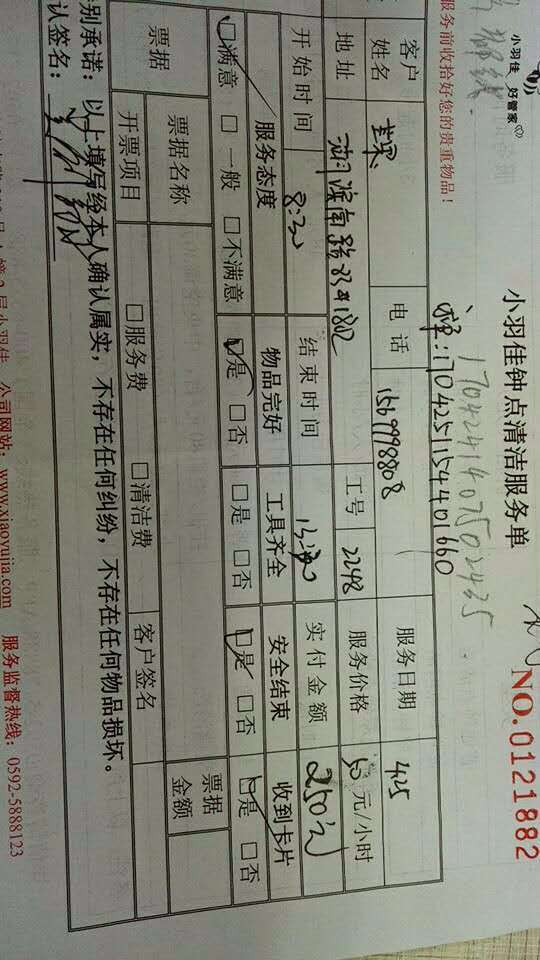 小羽佳
好管家
服务前收拾好您的贵重物品!
小羽佳钟点清洁服务单
NO.0121882
1704241407502435
1704251154401660
客户姓名
电话
1569998808
服务日期
4.25
地址
湖滨南路3341802
工号
2248
服务价格
50元/小时
开始时间
8:30
结束时间
13:30
实付金额
250元
服务态度
物品完好
工具齐全
安全结束
收到卡片
☑满意 □一般 □不满意
☑是 □否
□是 □否
☑是 □否
☑是 □否
票据
票据名称
票据金额
开票项目
□服务费
□清洁费
客户签名
别承诺:以上填写经本人确认属实,不存在任何纠纷,不存在任何物品损坏。
认签名:
小羽佳 公司网站:www.xiaoyujia.com 服务监督热线:0592-5888123